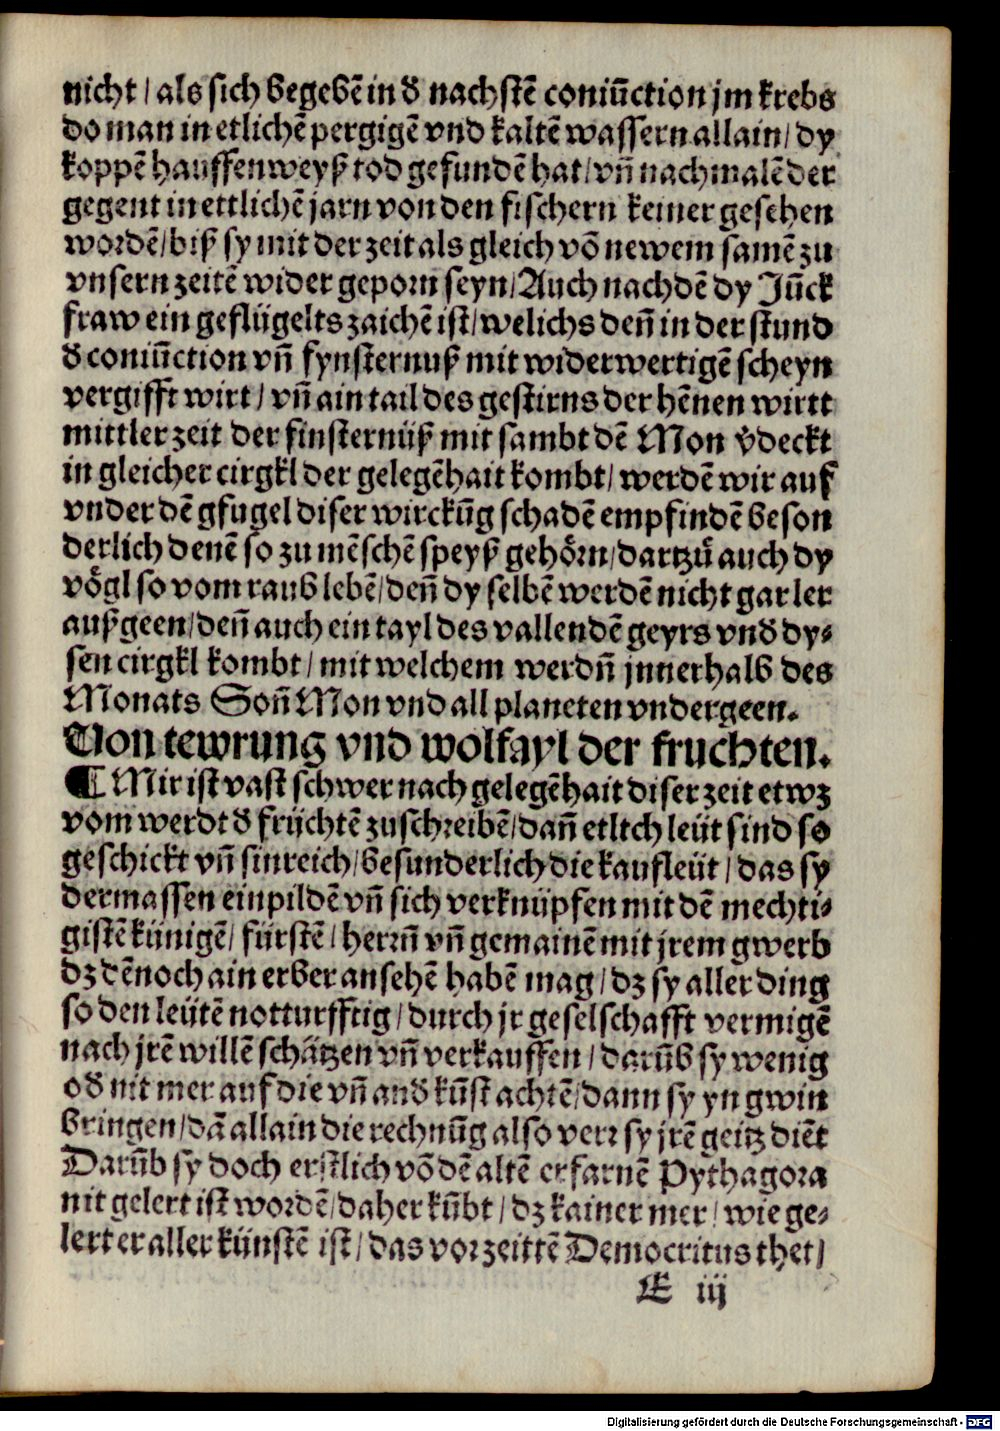 nicht / als sich begebē in đ nachstē coniūction jm krebs
do man in etlichē pergigē vnd kaltē wassern allain / dy
koppē hauffenweyß tod gefundē hat / vñ nachmalē der
gegent in ettlichē jarn von den fischern keiner gesehen
wordē / biß sy mit der zeit als gleich võ newem samē zu
vnsern zeitē wider geporn seyn / Auch nachdē dy Jūck
fraw ein geflügelts zaichē ist / welichs deñ in der stund
đ coniūction vñ fynsternuß mit widerwertigē scheyn
vergifft wirt / vñ ain tail des gestirns der hēnen wirtt
mittler zeit der finsternüß mit sambt dē Mon v̄deckt
in gleicher cirgkl der gelegēhait kombt / werdē wir auf
vnder dē gfugel diser wirckūg schadē empfindē beson
derlich denē so zu mēschē speyß gehörn / dartzů auch dy
vögl so vom raub lebē / deñ dy selbē werdē nicht gar ler
außgeen / deñ auch ein tayl des vallendē geyrs vnđ dy⸗
sen cirgkl kombt / mit welchem werdñ jnnerhalb des
Monats Soñ Mon vnd all planeten vndergeen.
Von tewrung vnd wolfayl der fruchten.
¶ Mir ist vast schwer nach gelegēhait diser zeit etwz
vom werdt đ früchtē zuschreibē / dañ etltch leüt sind so
geschickt vñ sinreich / besunderlich die kaufleüt / das sy
dermassen einpildē vñ sich verknüpfen mit dē mechti⸗
gistē künigē / fürstē / herrñ vñ gemainē mit jrem gwerb
dz dēnoch ain erber ansehē habē mag / dz sy aller ding
so den leütē notturfftig / durch jr geselschafft vermigē
nach jrē willē schätzen vñ verkauffen / darūb sy wenig
ođ nit mer auf die vñ anđ kūst achtē / dann sy yn gwin
bringen / dā allain die rechnūg also verr sy jrē geitz diēt
Darūb sy doch erstlich võ dē altē erfarnē Pythagora
nit gelert ist wordē / daher kūbt / dz kainer mer / wie ge⸗
lert er aller künstē ist / das vorzeittē Democritus thet /
E iij
Digitalisierung gefördert durch die Deutsche Forschungsgemeinschaft - DFG